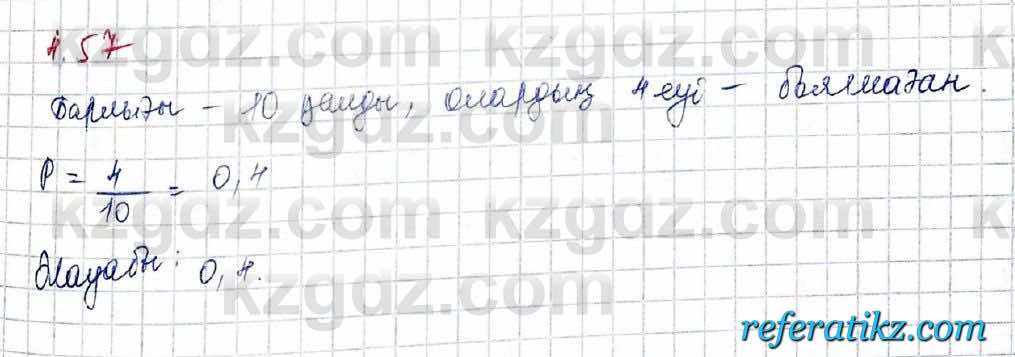 kzgdz.com kzgdz.com k
4.57
Барлығы - 10 далды, олардың 4 еуі - боялмаған.
P = 4/10 = 0,4
kzgdz.com kzgdz.com k
Жауабы: 0,4.
kzgdz.com
referatikz.com